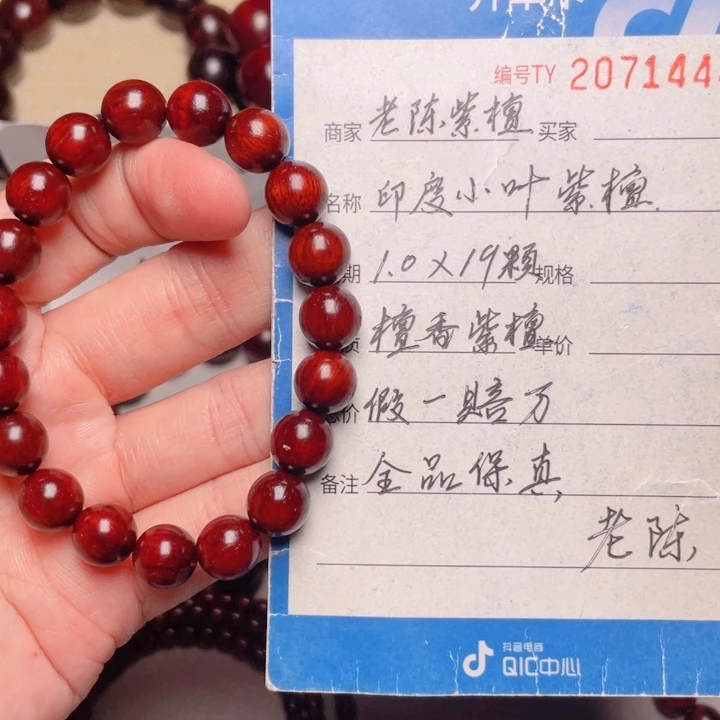 编号TY 207144
商家 老陈紫檀 买家
名称 印度小叶紫檀
期 1.0×19颗 规格
檀香紫檀 单价
总价 假一赔万
备注 全品保真,
老陈,
抖音电商
QIC中心